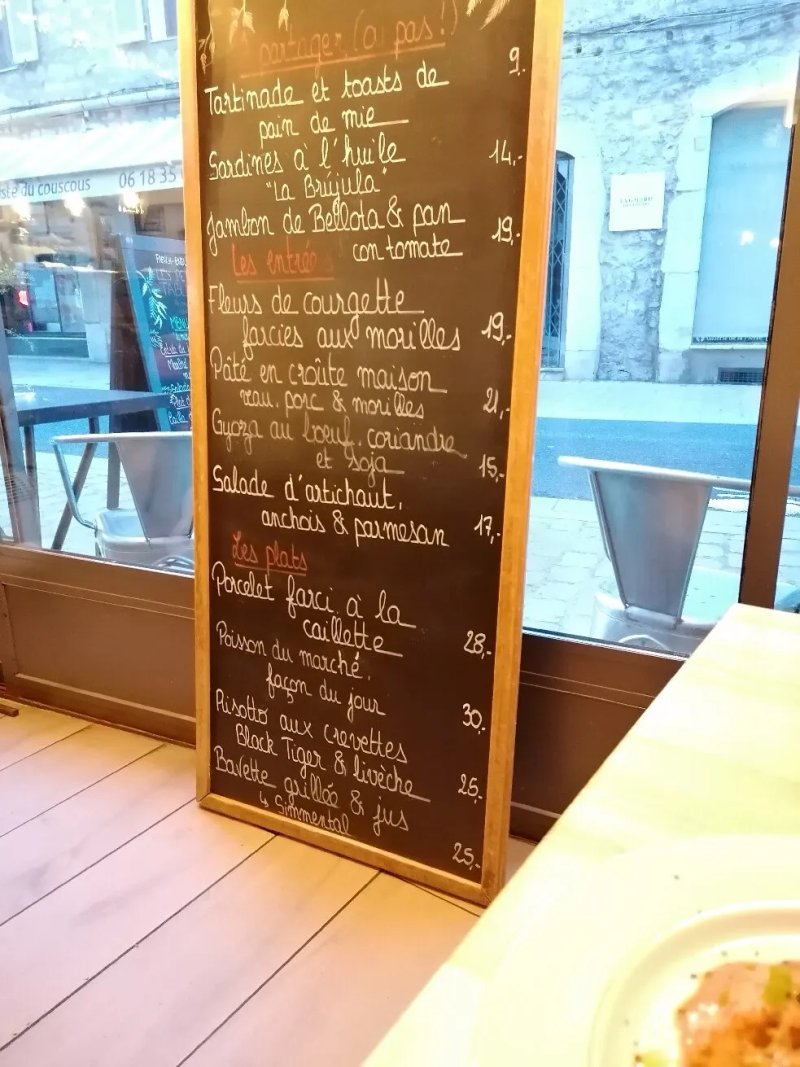 à partager (ou pas!)
Tartinade et toasts de 9.
pain de mie
Sardines à l'huile 14,-
"La Brújula"
Jambon de Bellota & pan 19,-
con tomate
Les entrées
Fleurs de courgette
farcies aux morilles 19,-
Pâté en croûte maison
veau, porc & morilles 21,-
Gyoza au boeuf, coriandre
et soja 15,-
Salade d'artichaut,
anchois & parmesan 17,-
Les plats
Porcelet farci à la
caillette 28,-
Poisson du marché,
façon du jour 30,-
Risotto aux crevettes
Black Tiger & livèche 25,-
Bavette grillée & jus
↳ Simmental 25,-
du couscous 06 18 35
MENU